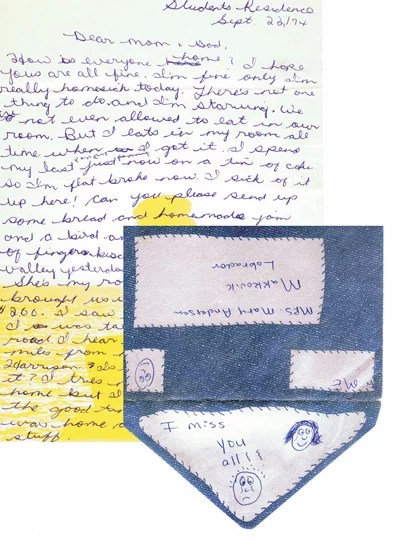 Students Residence
Sept. 22/74
Dear Mom & Dad,
How is everyone home? I hope
yous are all fine. I'm fine only I'm
really homesick today. There's not one
thing to do and I'm starving. We
not even allowed to eat in our
room. But I eats in my room all
time when I got it. I spend
my last just now on a tin of coke
so I'm flat broke now. I sick of it
up here! Can you please send up
some bread and homemade jam
and a bird an
of finger
valley yesterda
She's my ro
brought us u
$2.00. I saw
I was ta
road. I hear
miles from
Harrison
it? I tries
home but I
the good t
was home
stuff.
Mrs Mary Andersen
Makkovik
Labrador
I miss
you
all!